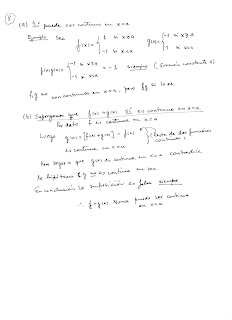 8 (a) Sí puede ser continua en x=a
Ejemplo Sea f(x)= { 1 si x≥a g(x)= { -1 si x≥a
-1 si x<a 1 si x<a
f(x)g(x)= { -1 si x≥a = -1 siempre. (función constante)
-1 si x<a
f, g no son continuas en x=a, pero fg sí lo es.
(b) Supongamos que f(x)+g(x) SÍ es continua en x=a
f es continua en x=a
Luego g(x) = [f(x)+g(x)] - f(x) } (Resta de dos funciones
es continua en x=a continuas)
que g(x) es continua en x=a contradice
la hipótesis g no es continua en x=a.
En conclusión la suposición es falsa siempre
∴ f+g(x) Nunca puede ser continua
en x=a.